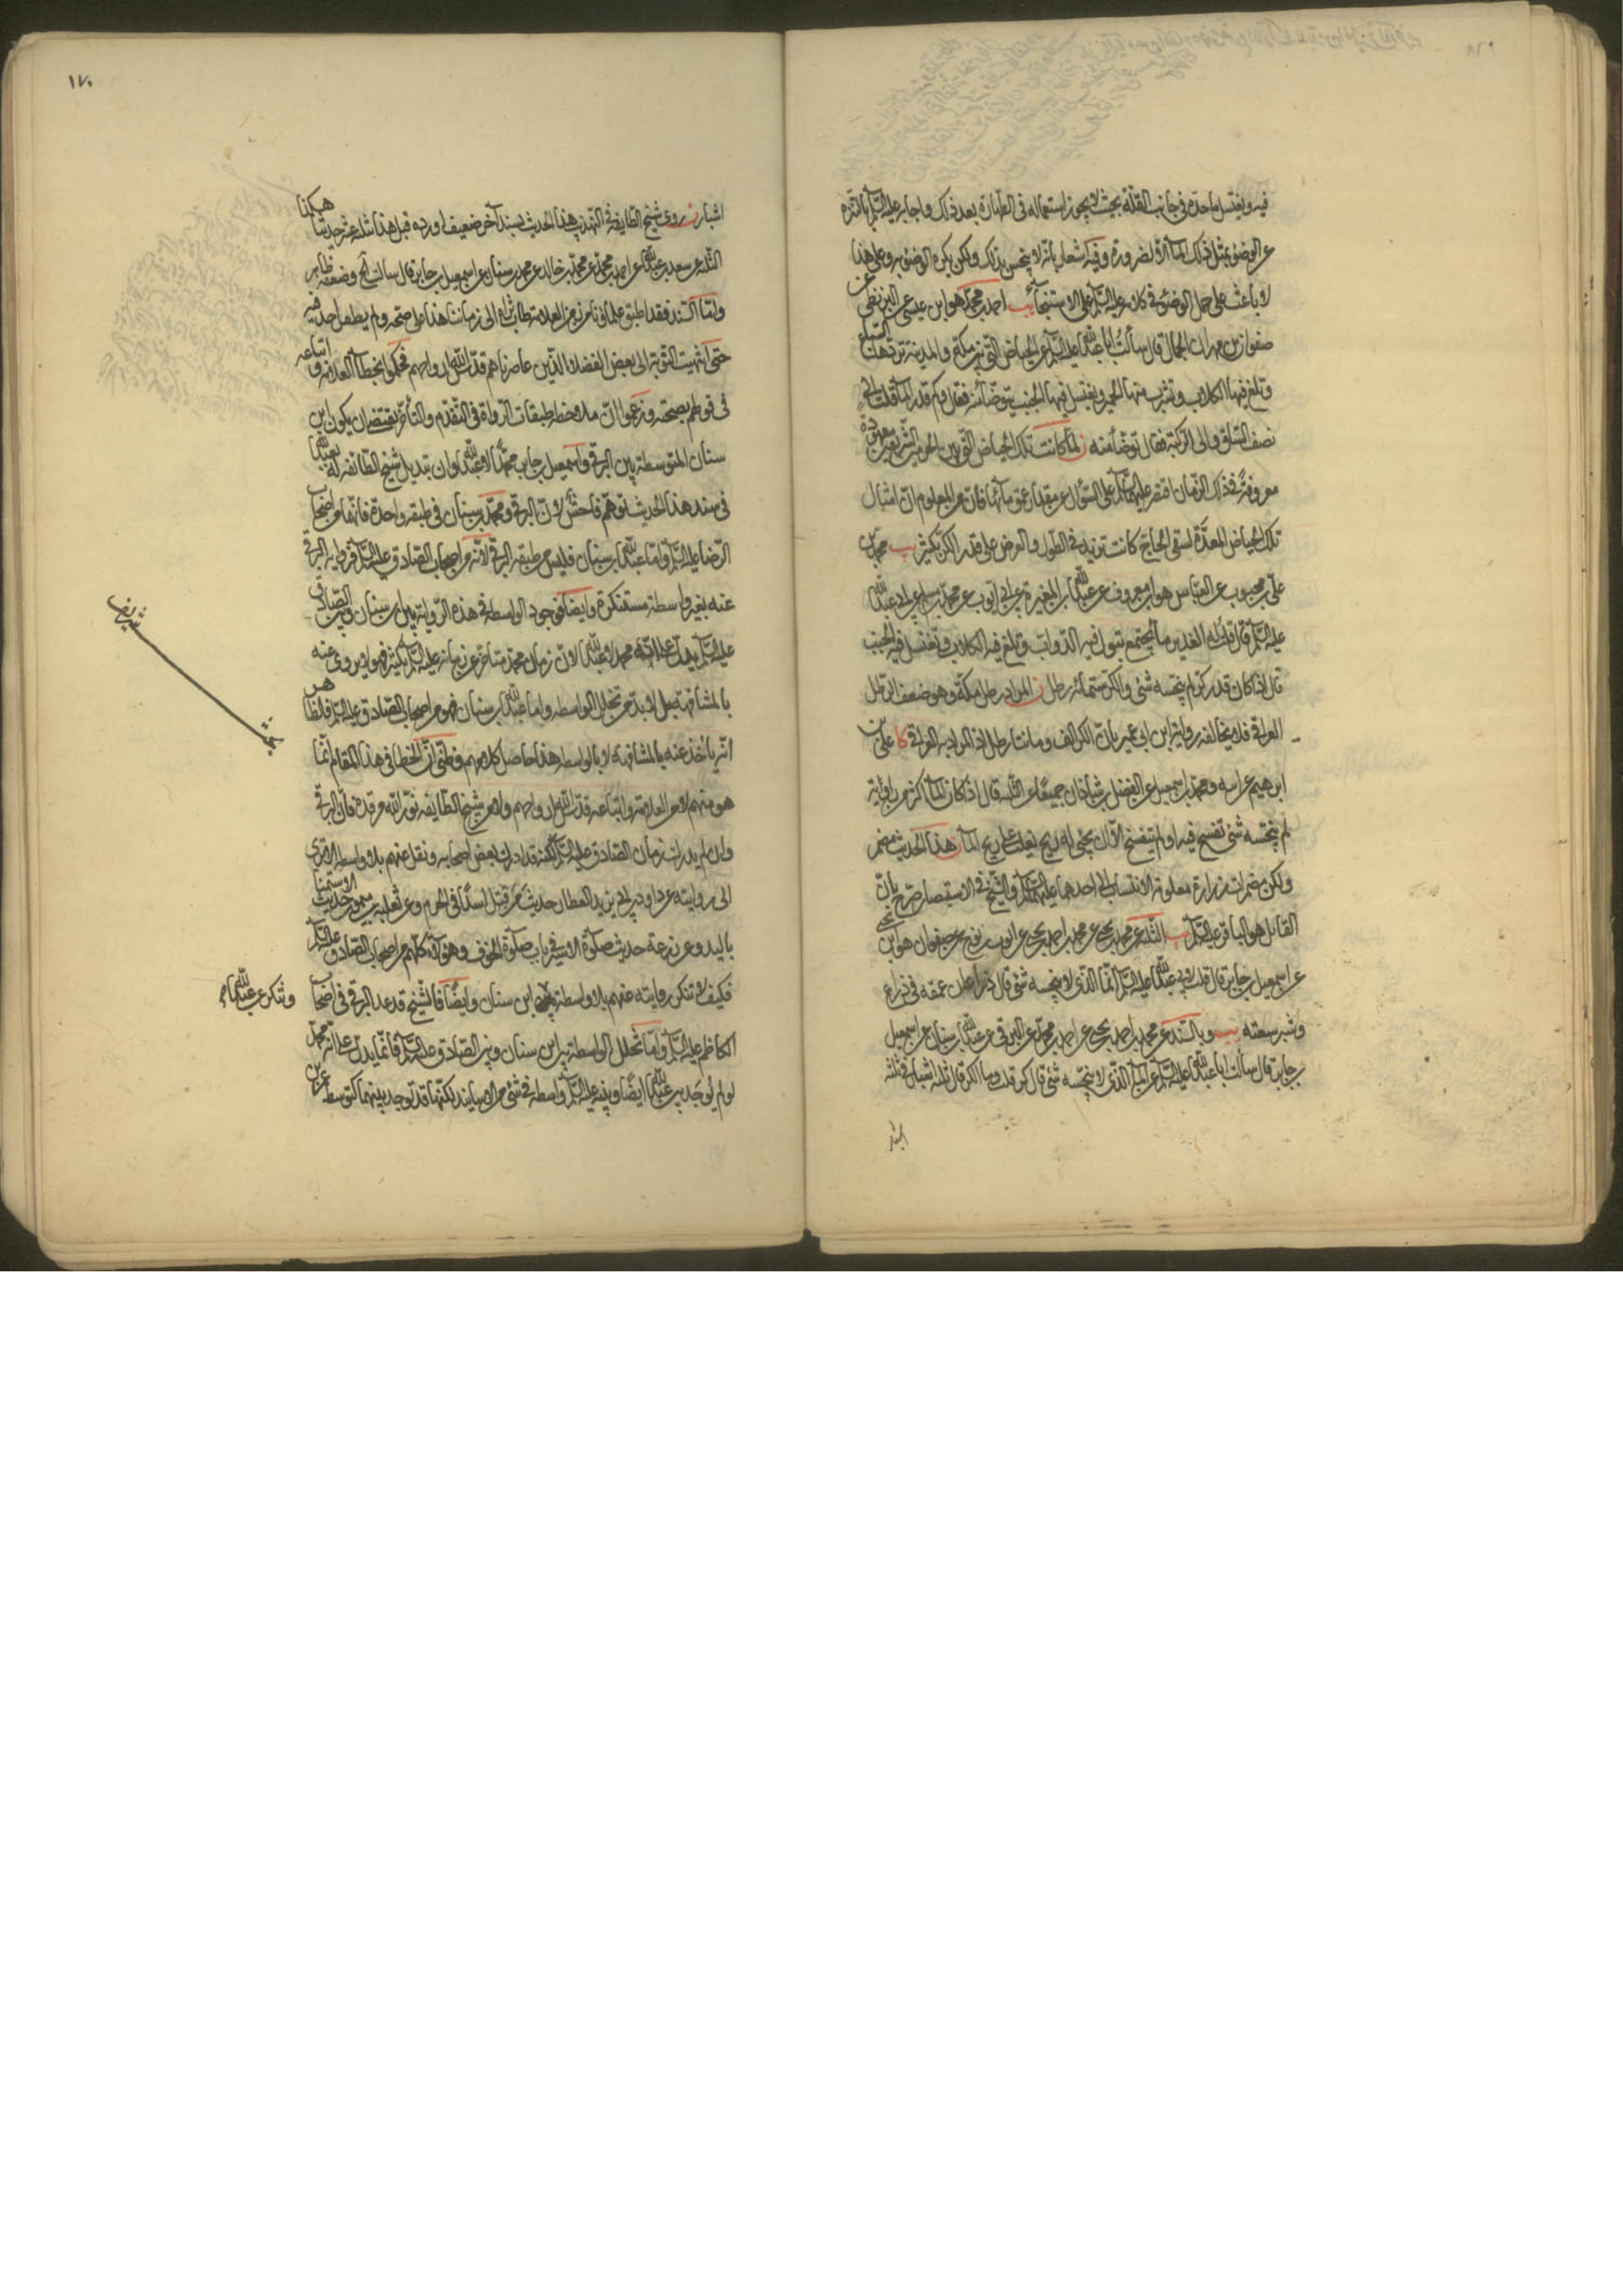 فيه ويغتسل ماحده في جانب القلة بحيث لا يجوز استعماله في الطهارة بعد ذلك واجابه عليه السلم بالتنزه
عن الوضوء بمثل ذلك الماء الا لضرورة وفيه اشعار بانه لا ينجس بذلك ولكن يكره الوضوء به وعلى هذا
لا باعث على حمل الوضوء في كلامه عليه السلم على الاستنجاء يب احمد بن محمد هو ابن عيسى عن البزنطي عن
صفوان بن مهران الجمال قال سألت ابا عبدالله عليه السلم عن الحياض التي بين مكة والمدينة تردها السباع
وتلغ فيها الكلاب وتشرب منها الحمير ويغتسل فيها الجنب يتوضأ منه فقال وكم قدر الماء قلت الى
نصف الساق والى الركبة فقال توضأ منه ن لما كانت تلك الحياض التي بين الحرمين الشريفين معهودة
معروفة في ذلك الزمان اقتصر عليه السلم على السؤال عن مقدار عمق مائها فان من المعلوم ان امثال
تلك الحياض المعدة لسقي الحاج كانت تزيد في الطول والعرض على قدر الكر بكثير يب محمد بن
علي بن محبوب عن العباس هو ابن معروف عن عبدالله بن المغيرة عن ابي ايوب عن محمد بن مسلم عن ابي عبدالله
عليه السلم قال قلت له الغدير ماء مجتمع تبول فيه الدواب وتلغ فيه الكلاب وتغتسل فيه الجنب
قال اذا كان قدر كر لم ينجسه شئ والكر ستمائة رطل ن المراد رطل مكة وهو ضعف الرطل
العراقي فلا يخالفه رواية ابن ابي عمير بان الكر الف ومائتا رطل اذ المراد به العراقي كا علي بن
ابرهيم عن ابيه ومحمد بن اسمعيل عن الفضل بن شاذان جميعا عن الثلثة قال اذا كان الماء اكثر من راوية
لم ينجسه شئ تفسخ فيه او لم يتفسخ الا ان يجئ له ريح يغلب على ريح الماء ن هذا الحديث مضمر
ولكن مضمرات زرارة معلومة الانتساب الى احدهما عليهما السلم والشيخ في الاستبصار صرح بان
القائل هو الباقر عليه السلم يب الثلثة عن محمد بن يحيى عن محمد بن احمد بن يحيى عن ايوب بن نوح عن صفوان هو ابن يحيى
عن اسمعيل بن جابر قال قلت لابي عبدالله عليه السلم الماء الذي لا ينجسه شئ قال ذراعان عمقه في ذراع
وشبر سعته يب وبالسند عن محمد بن احمد بن يحيى عن احمد بن محمد عن البرقي عن عبدالله بن سنان عن اسمعيل
بن جابر قال سألت ابا عبدالله عليه السلم عن الماء الذي لا ينجسه شئ قال كر قلت وما الكر قال ثلثة اشبار في ثلثة
١٧٠
اشبار ن روى شيخ الطايفة في التهذيب هذا الحديث بسند آخر ضعيف اورده قبل هذا بثلثة عشر حديثا هكذا
الثلثة عن سعد بن عبدالله عن احمد بن محمد عن محمد بن خالد عن محمد بن سنان عن اسمعيل بن جابر قال سألت الخ وضعفه ظاهر
واما السند فقد اطبق علماؤنا من زمن العلامة طاب ثراه الى زماننا هذا على صحته ولم يطعن احد فيه
حتى انتهيت النوبة الى بعض الفضلاء الذين عاصرناهم قدس الله ارواحهم فحكموا بخطأ العلامة واتباعه
في قولهم بصحته وزعموا ان ملاحظة طبقات الرواة في التقدم والتأخر يقتضي ان يكون ابن
سنان المتوسط بين البرقي واسمعيل بن جابر محمدا لا عبدالله وان تبديل شيخ الطائفة له بعبدالله
في سند هذا الحديث توهم فاحش لان البرقي ومحمد بن سنان في طبقة واحدة فانهما من اصحاب
الرضا عليه السلم واما عبدالله بن سنان فليس من طبقة البرقي لانه من اصحاب الصادق عليه السلم فرواية البرقي
عنه بغير واسطة مستنكرة وايضا فوجود الواسطة في هذه الرواية بين ابن سنان وبين الصادق
عليه السلم يدل على انه محمد لا عبدالله لان زمان محمد متأخر عن زمانه عليه السلم بكثير فهو لا يروي عنه
بالمشافهة بل لا بد من تخلل الواسطه واما عبدالله بن سنان فهو من اصحاب الصادق عليه السلم فالظاهر
انه يأخذ عنه بالمشافهة لا بالواسطه هذا حاصل كلامهم وظني ان الخطأ في هذا المقام انما
هو منهم لا من العلامة واتباعه قدس الله ارواحهم ولا من شيخ الطايفه نور الله مرقده فان البرقي
وان لم يدرك زمان الصادق عليه السلم لكنه قد ادرك بعض اصحابه ونقل عنهم بلا واسطه الا ترى
الى روايته عن داود بن ابي يزيد العطار حديث من قتل اسدا في الحرم وعن ثعلبة بن ميمون حديث الاستمنا
باليد وعن زرعة حديث صلوة الاسير في باب صلوة الخوف وهؤلاء كلهم من اصحاب الصادق عليه السلم
فكيف لا تنكر روايته عنهم بلا واسطة وتنكر عن عبدالله بن سنان وايضا فالشيخ قد عد البرقي في اصحاب
الكاظم عليه السلم واما تخلل الواسطة بين ابن سنان وبين الصادق عليه السلم فانما يدل على انه محمد
لو لم توجد بين عبدالله ايضا وبينه عليه السلم واسطه في شئ من الاسانيد لكنها قد توجد بينهما كتوسط عمر بن